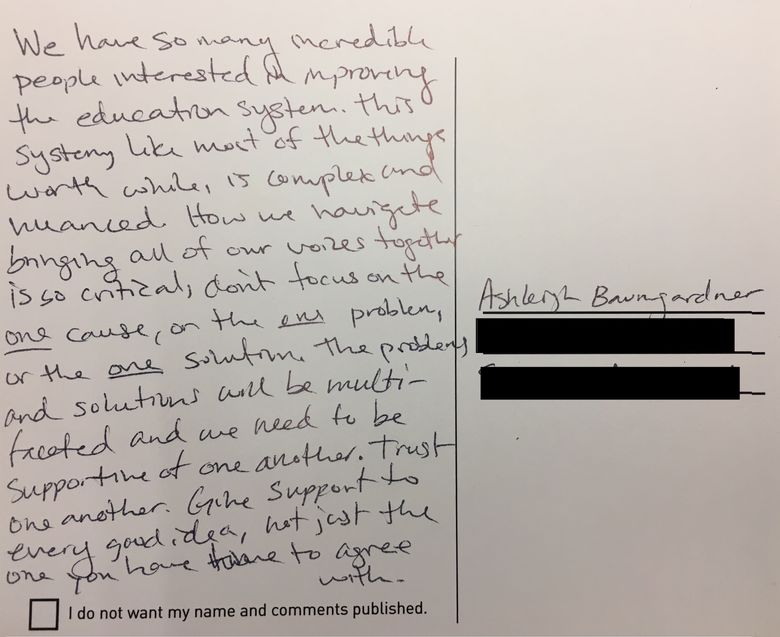 We have so many incredible
people interested in improving
the education system. This
system, like most of the things
worth while, is complex and
nuanced. How we navigate
bringing all of our voices together
is so critical, don't focus on the
one cause, or the one problem,
or the one solution. The problems
and solutions will be multi-
faceted and we need to be
supportive of one another. Trust
one another. Give support to
every good idea, not just the
one you have to agree
with.
I do not want my name and comments published.
Ashleigh Baumgardner